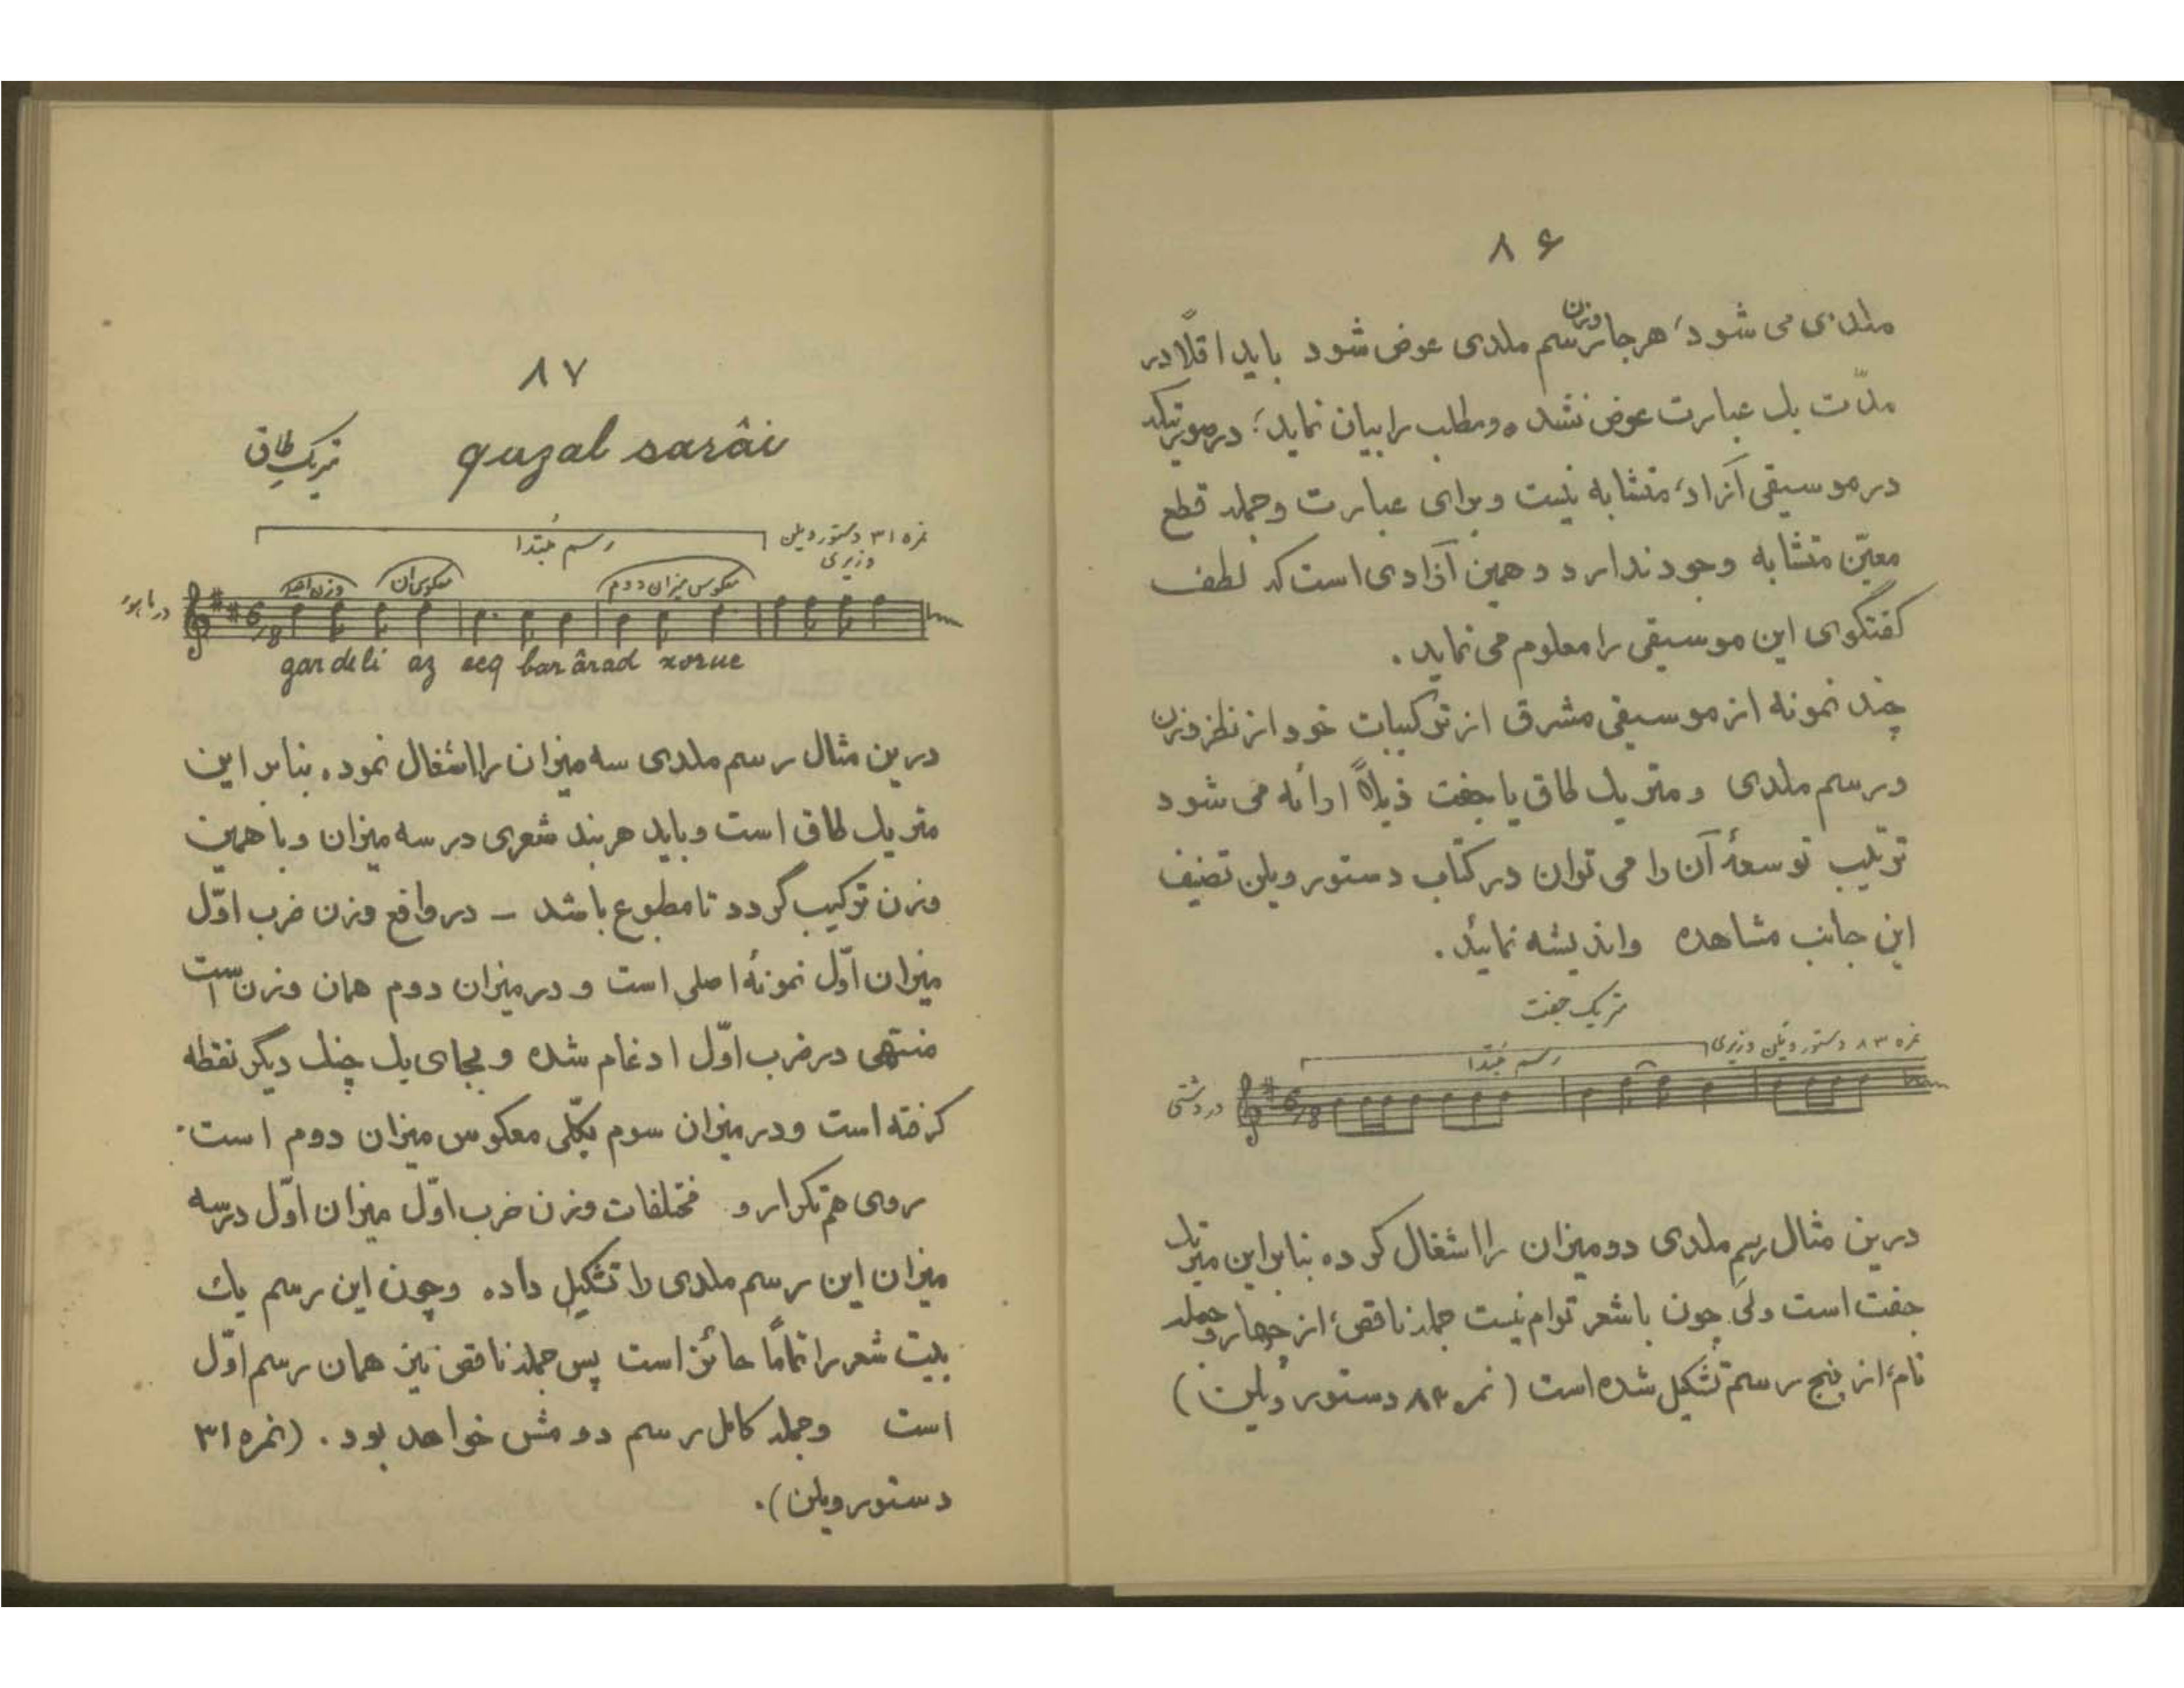 ۸۶
ملدی می شود، هر جا وزن رسم ملدی عوض شود باید اقلاً در
مدّت یک عبارت عوض نشده و مطلب را بیان نماید؛ در صورتیکه
در موسیقی آزاد، متشابه نیست و برای عبارت و جمله قطع
معیّن متشابه وجود ندارد و همین آزادی است که لطف
گفتگوی این موسیقی را معلوم می نماید.
چند نمونه از موسیقی مشرق از ترکیبات خود از نظر وزن
در رسم ملدی و متریک طاق یا جفت ذیلاً ارائه می شود
ترتیب توسعهٔ آن را می توان در کتاب دستور ویلن تصنیف
این جانب مشاهده و اندیشه نمائید.
متریک جفت
نمره ۸۳ دستور ویلن وزیری
رسم مبتدا
در دشتی
6/8
درین مثال رسم ملدی دو میزان را اشغال کرده بنابراین متریک
جفت است ولی چون با شعر توام نیست جمله ناقص، از چهار و جمله
تام، از پنج رسم تشکیل شده است (نمره ۸۳ دستور ویلن)
۸۷
متریک طاق qazal sarâi
نمره ۳۱ دستور ویلن
وزیری
رسم مبتدا
وزن اصلی معکوس آن معکوس میزان دوم
در ماهور
6/8
gar deli az ecq bar ârad xorue
درین مثال رسم ملدی سه میزان را اشغال نموده. بنابر این
متریک طاق است و باید هر بند شعری در سه میزان و با همین
وزن ترکیب گردد تا مطبوع باشد – در واقع وزن ضرب اوّل
میزان اوّل نمونهٔ اصلی است و در میزان دوم همان وزن است
منتهی در ضرب اوّل ادغام شده و بجای یک چنگ دیگر نقطه
گرفته است و در میزان سوم بکلّی معکوس میزان دوم است.
روی هم تکرار و مختلفات وزن ضرب اوّل میزان اوّل در سه
میزان این رسم ملدی را تشکیل داده و چون این رسم یک
بیت شعر را تماماً حائز است پس جمله ناقص نیز همان رسم اوّل
است و جمله کامل رسم دومش خواهد بود. (نمره ۳۱
دستور ویلن).